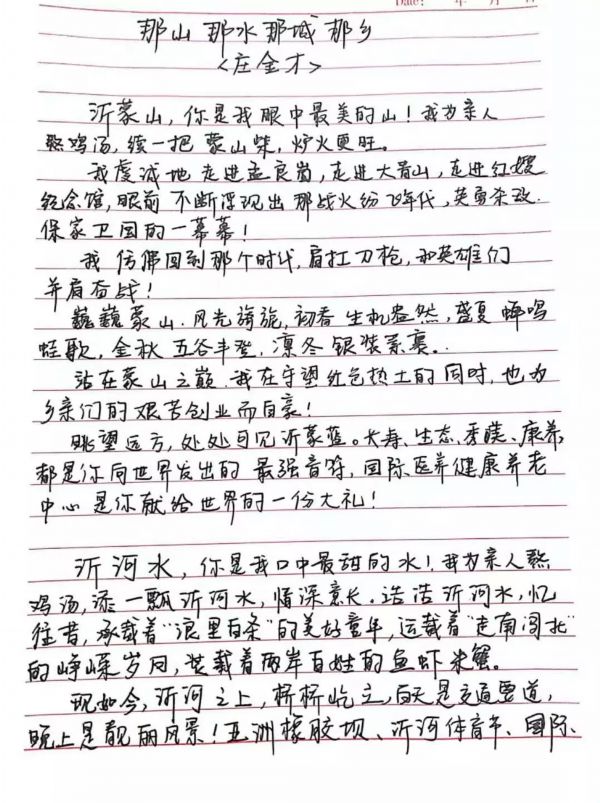 Date: 年 月 日
那山 那水 那城 那乡
<庄金才>
沂蒙山,你是我眼中最美的山!我为亲人
熬鸡汤,续一把蒙山柴,炉火更旺。
我虔诚地走进孟良崮,走进大青山,走进红嫂
纪念馆,眼前不断浮现出那战火纷飞年代,英勇杀敌.
保家卫国的一幕幕!
我仿佛回到那个时代,肩扛刀枪,和英雄们
并肩奋战!
巍巍蒙山.风光旖旎,初春生机盎然,盛夏蝉鸣
蛙歌,金秋五谷丰登,凛冬银装素裹。
站在蒙山之巅.我在守望红色热土的同时,也为
乡亲们的艰苦创业而自豪!
眺望远方,处处可见沂蒙蓝。长寿、生态、康养
都是你向世界发出的最强音符,国际医养健康养老
中心是你献给世界的一份大礼!
沂河水,你是我口中最甜的水!我为亲人熬
鸡汤,添一瓢沂河水,情深意长。浩浩沂河水,忆
往昔,承载着"浪里白条"的美好童年,运载着"走南闯北"
的峥嵘岁月,装载着两岸百姓的鱼虾米蟹。
现如今,沂河之上,桥桥屹立,白天是交通要道,
晚上是靓丽风景!亚洲橡胶坝、沂河体育、国际